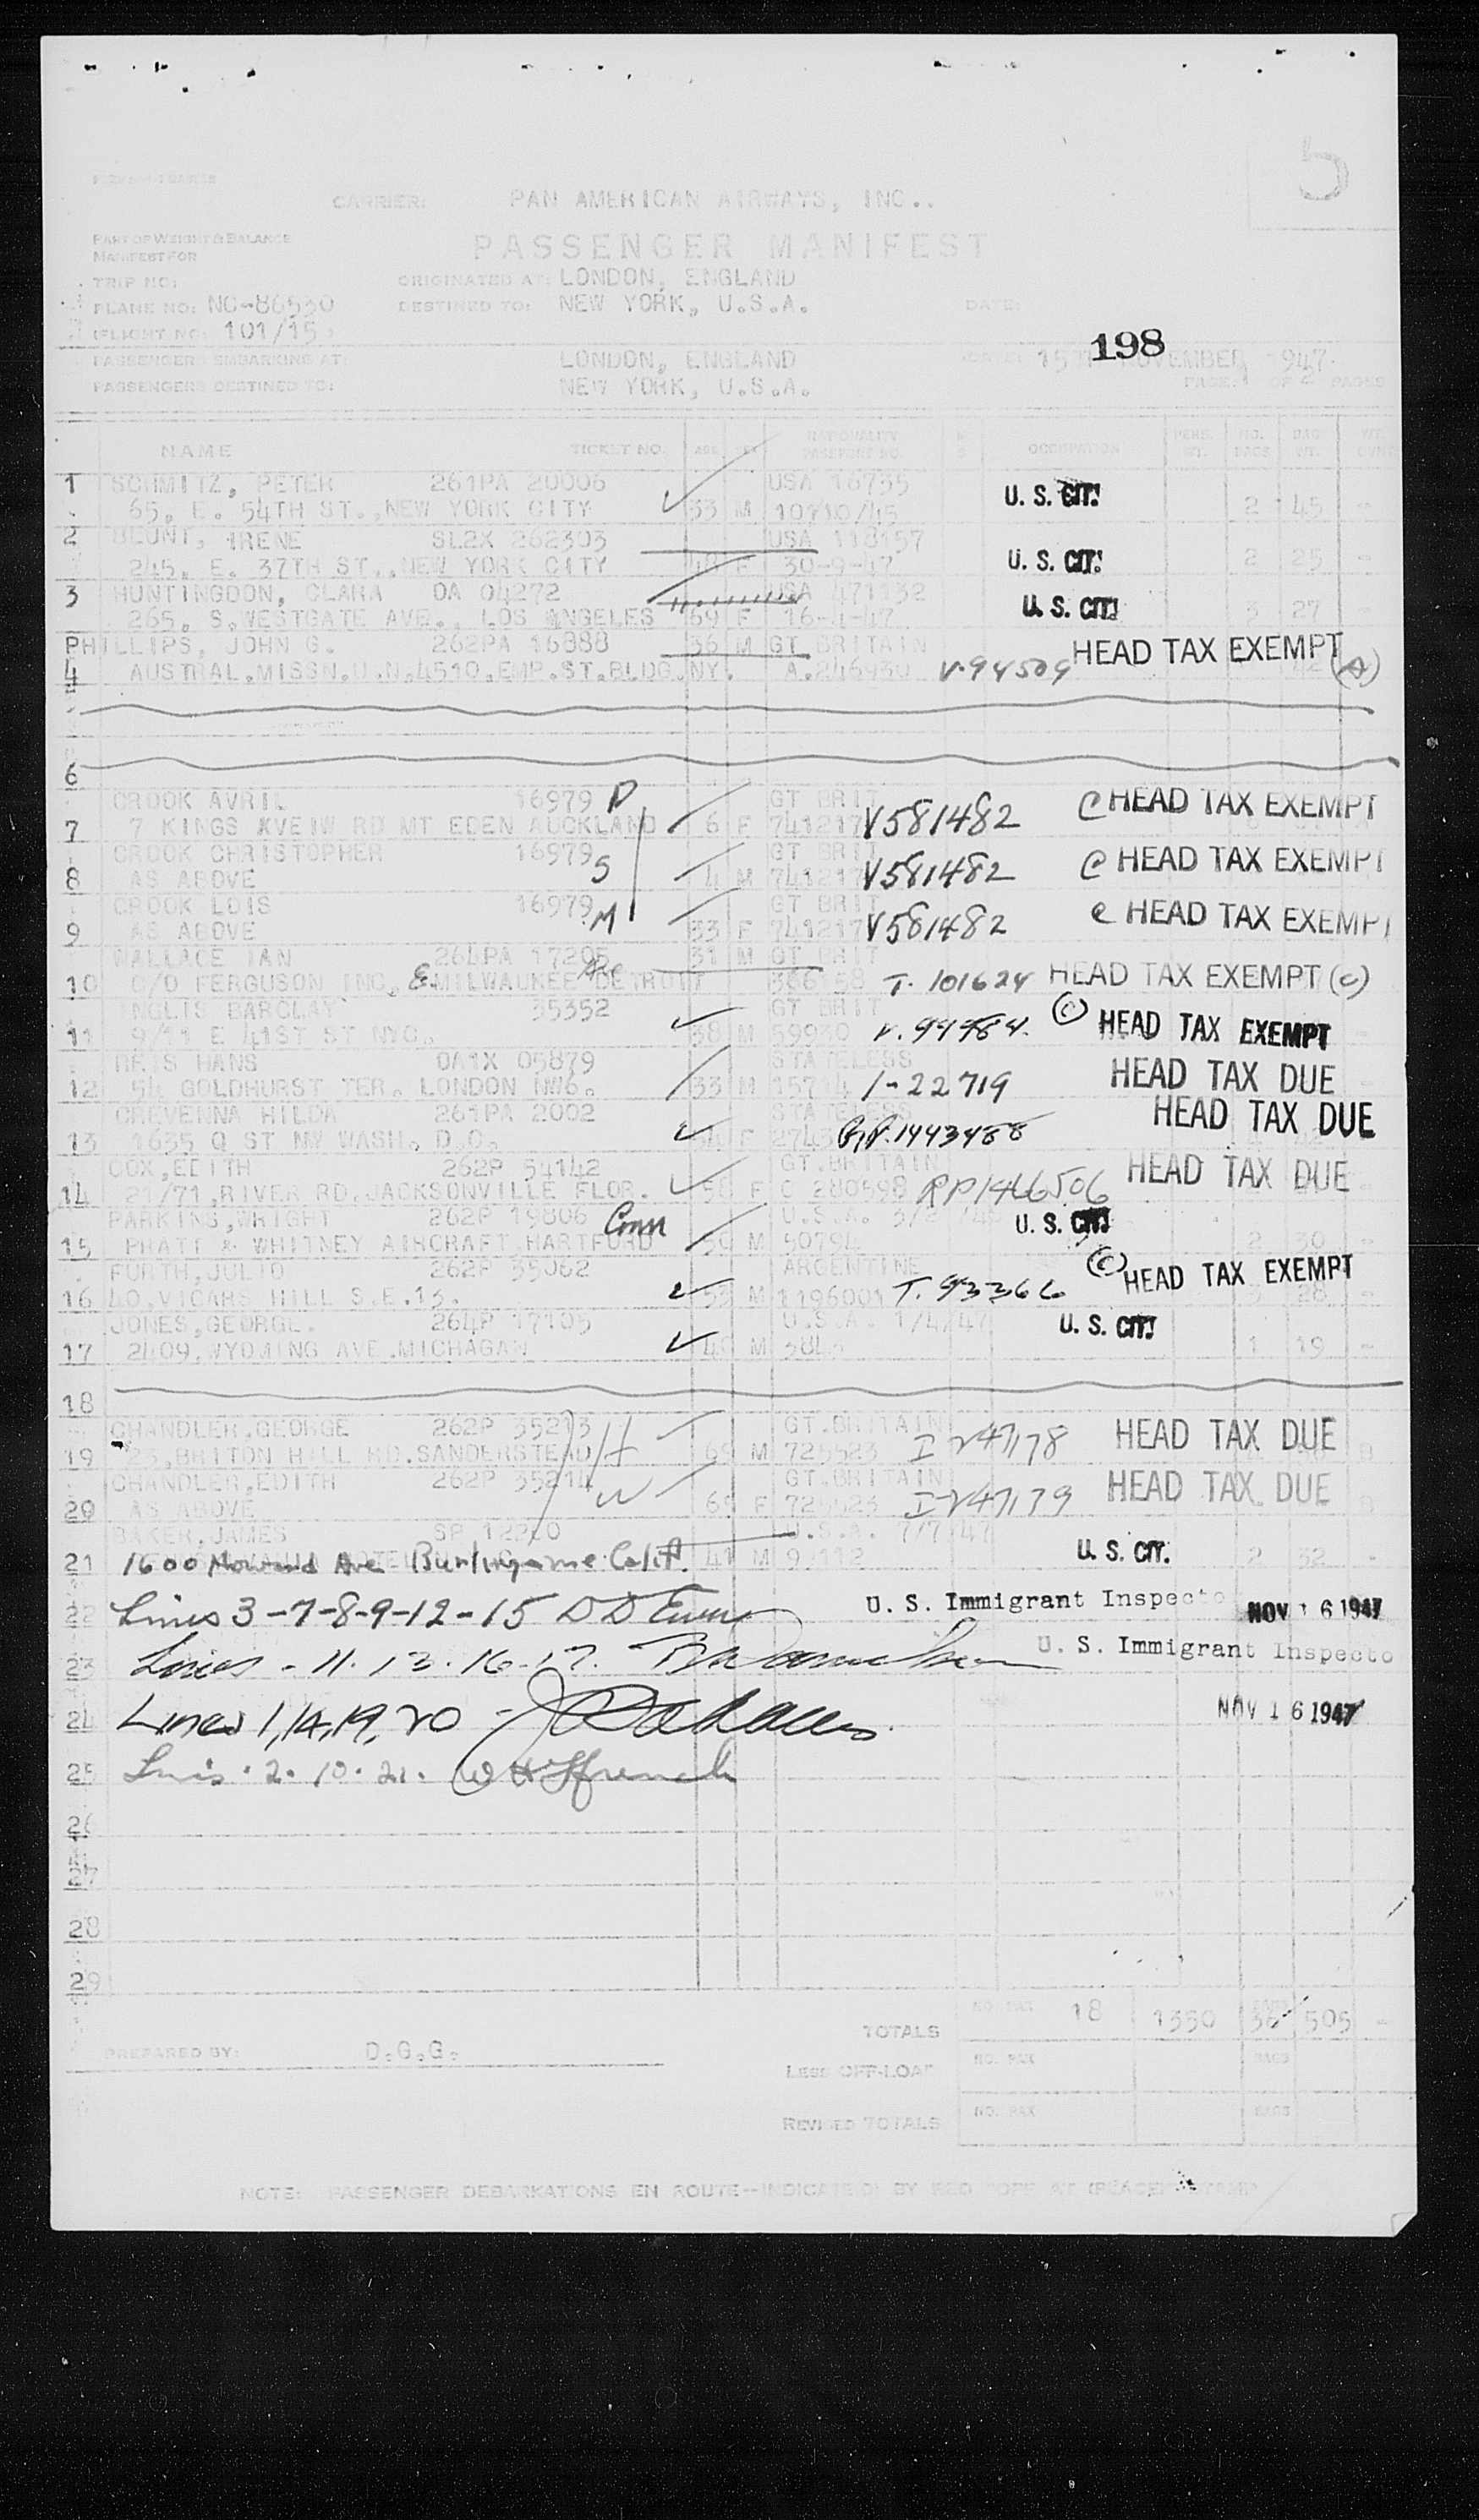 5
CARRIER: PAN AMERICAN AIRWAYS, INC..
PART OF WEIGHT & BALANCE
MANIFEST FOR
PASSENGER MANIFEST
TRIP NO: ORIGINATED AT: LONDON, ENGLAND
PLANE NO: NC-86530 DESTINED TO: NEW YORK, U.S.A. DATE:
FLIGHT NO: 101/15
198
PASSENGERS EMBARKING AT: LONDON, ENGLAND DATE: 15TH NOVEMBER 1947.
PASSENGERS DESTINED TO: NEW YORK, U.S.A. PAGE: 1 OF 2 PAGES
NAME TICKET NO. AGE SX NATIONALITY PASSPORT NO. OCCUPATION PERS. WT. NO. BAGS BAG WT.
1 SCHMITZ, PETER 261PA 20006 USA 16735
65, E. 54TH ST., NEW YORK CITY 33 M 10/10/45 U. S. CIT. 2 45 -
2 BLUNT, IRENE SL2X 262303 USA 118157
245, E. 37TH ST., NEW YORK CITY F 30-9-47 U. S. CIT. 2 25 -
3 HUNTINGDON, CLARA OA 04272 USA 471132
265, S.WESTGATE AVE., LOS ANGELES 69 F 16-4-47 U. S. CIT. 3 27 -
PHILLIPS, JOHN G. 262PA 16888 36 M GT BRITAIN HEAD TAX EXEMPT
4 AUSTRAL.MISSN.U.N.4510.EMP.ST.BLDG.NY. A.246930 V-94509 (A)
6
CROOK AVRIL 16979 D GT BRIT
7 7 KINGS XVEIW RD MT EDEN AUCKLAND 6 F 741217 V581482 C HEAD TAX EXEMPT
CROOK CHRISTOPHER 16979 S GT BRIT
8 AS ABOVE 4 M 741217 V581482 C HEAD TAX EXEMPT
CROOK LOIS 16979 M GT BRIT
9 AS ABOVE 33 F 741217 V581482 C HEAD TAX EXEMPT
WALLACE IAN 264PA 17205 31 M GT BRIT
10 C/O FERGUSON INC, E. MILWAUKEE Ave DETROIT T. 101624 HEAD TAX EXEMPT (C)
INGLIS BARCLAY 35352 GT BRIT
11 9/11 E 41ST ST NYC. 38 M 59930 V. 99984. (C) HEAD TAX EXEMPT
HANS OA1X 05879 STATELESS
12 54 GOLDHURST TER. LONDON NW6. 33 M 15714 I-22719 HEAD TAX DUE
CREVENNA HILDA 261PA 2002 STATELESS
13 1635 Q ST NW WASH. D.C. F R.P.1443488 HEAD TAX DUE
COX,EDITH 262P 34142 GT.BRITAIN
14 21/71,RIVER RD.JACKSONVILLE FLOR. 58 F C 280598 RP1466506 HEAD TAX DUE
PARKINS,WRIGHT 262P 19806 Conn U.S.A.
15 PRATT & WHITNEY AIRCRAFT.HARTFORD M 50794 U. S. CIT. 2 30 -
FURTH,JULIO 262P 35062 ARGENTINE
16 40,VICARS HILL S.E.13. 53 M 1196001 T. 93366 (C) HEAD TAX EXEMPT 28 -
JONES,GEORGE. 264P 17105 U.S.A. 1/4/47
17 2409,WYOMING AVE.MICHAGAN M U. S. CIT. 1 19 -
18
CHANDLER,GEORGE 262P 35213 H GT.BRITAIN
19 23,BRITON HILL RD.SANDERSTEAD 69 M 725523 I-247178 HEAD TAX DUE
CHANDLER,EDITH 262P 35214 W GT.BRITAIN
20 AS ABOVE F 725523 I-247179 HEAD TAX DUE
BAKER,JAMES SP 12220 U.S.A. 7/7/47
21 1600 Howard Ave Burlingame Calif. 41 M 9.112 U. S. CIT. 2 32 -
22 Lines 3-7-8-9-12-15 U. S. Immigrant Inspecto NOV 16 1947
23 Lines - 11. 13. 16. 17. U. S. Immigrant Inspecto
24 Lines 1, 14, 19, 20 NOV 16 1947
25 Lines 2. 10. 21. W H Ffrench
26
27
28
29
TOTALS NO. PAX 18 1350 BAGS 36 505 -
PREPARED BY: D.G.G.
LESS OFF-LOAD NO. PAX BAGS
REVISED TOTALS NO. PAX BAGS
NOTE: PASSENGER DEBARKATIONS EN ROUTE—INDICATED BY RED